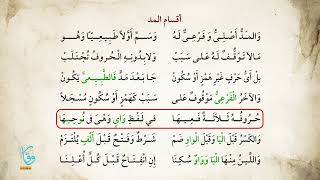 أقسام المد
وَالمَدُّ أَصْلِيٌّ وَفَرْعِيٌّ لَهُ وَسَمِّ أَوَّلاً طَبِيعِيًّا وَهُو
مَا لاَ تَوَقُّفٌ لَهُ عَلَى سَبَبْ وَلاَ بِدُونِهِ الْحُرُوفُ تُجْتَلَبْ
بَلْ أَيُّ حَرْفٍ غَيْرِ هَمْزٍ أَوْ سُكُونْ جَا بَعْدَ مَدٍّ فَالطَّبِيعِيُّ يَكُونْ
وَالآخَرُ الْفَرْعِيُّ مَوْقُوفٌ عَلَى سَبَبْ كَهَمْزٍ أَوْ سُكُونٍ مُسْجَلاَ
حُرُوفُهُ ثَلاَثَةٌ فَعِيهَا فِي لَفْظِ وَايٍ وَهْيَ فِي نُوحِيهَا
وَالْكَسْرُ قَبْلَ الْيَا وَقَبْلَ الْوَاوِ ضَمْ شَرْطٌ وَفَتْحٌ قَبْلَ أَلْفٍ يُلْتَزَمْ
وَاللِّينُ مِنْهَا الْيَا وَوَاوٌ سُكِّنَا إِنِ انْفِتَاحٌ قَبْلَ كُلٍّ أُعْلِنَا